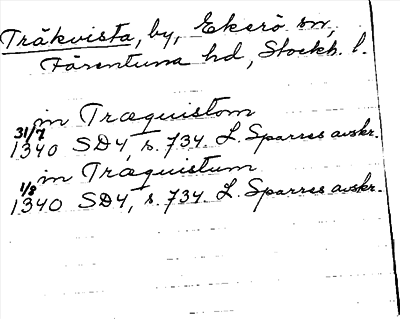 Träkvista, by, Ekerö sn,
Färentuna hd, Stockh. l.
in Træquistom
31/7 1340 SD4, s. 734. L. Sparres avskr.
in Træquistum
1/8 1340 SD4, s. 734. L. Sparres avskr.